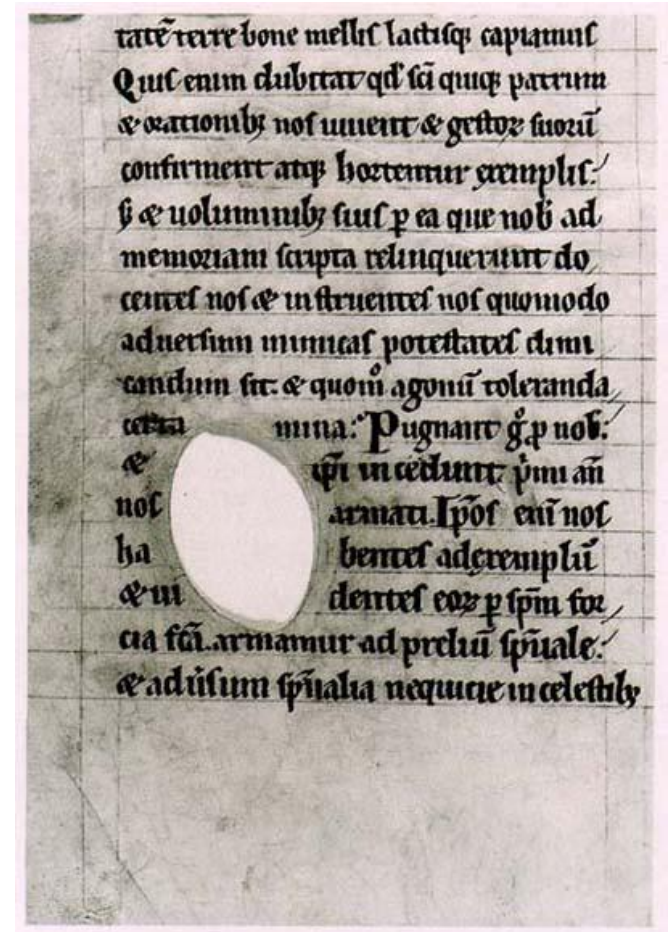 tatē terre bone mellis lactisq; capiamus
Quis enim dubitat qđ sc̄i quiq; patrum
& orationib; nos iuuent & gestoꝝ suorū
confirment atq; hortentur exemplis:
& uoluminib; suis ꝑ ea que nob̄ ad
memoriam scripta relinquerunt do
centes nos & instruentes nos quomodo
aduersum inimicas potestates dimi
candum sit: & quom̊ agonū toleranda
certa mina: Pugnant g̊ ꝓ nob̄:
& ip̄i incedunt p̍mi an̄
nos armati. Ip̄os eni̅ nos
ha bentes ad exemplū
& ui dentes eoꝝ ꝑ sp̄m for
cia fc̄a. armamur ad preliū sp̄uale:
& adu̍sum sp̄ualia nequicie in celestib;